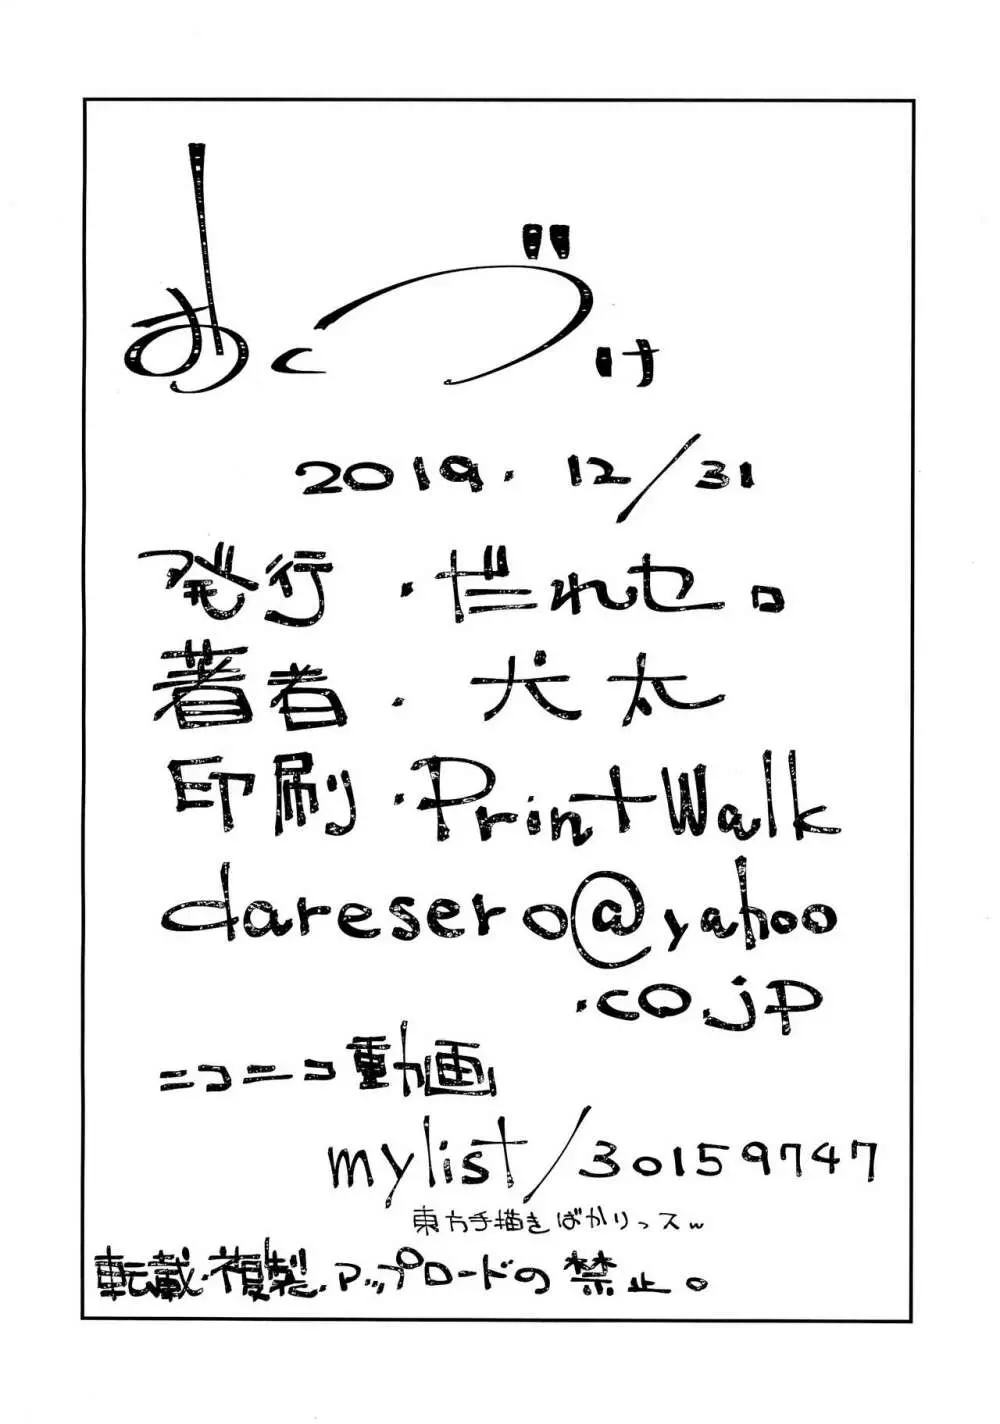 おくづけ
2019. 12/31
発行・だれセロ
著者・犬太
印刷・PrintWalk
daresero@yahoo
.co.jp
ニコニコ動画
mylist/30159747
東方手描きばかりっスw
転載・複製・アップロードの禁止。